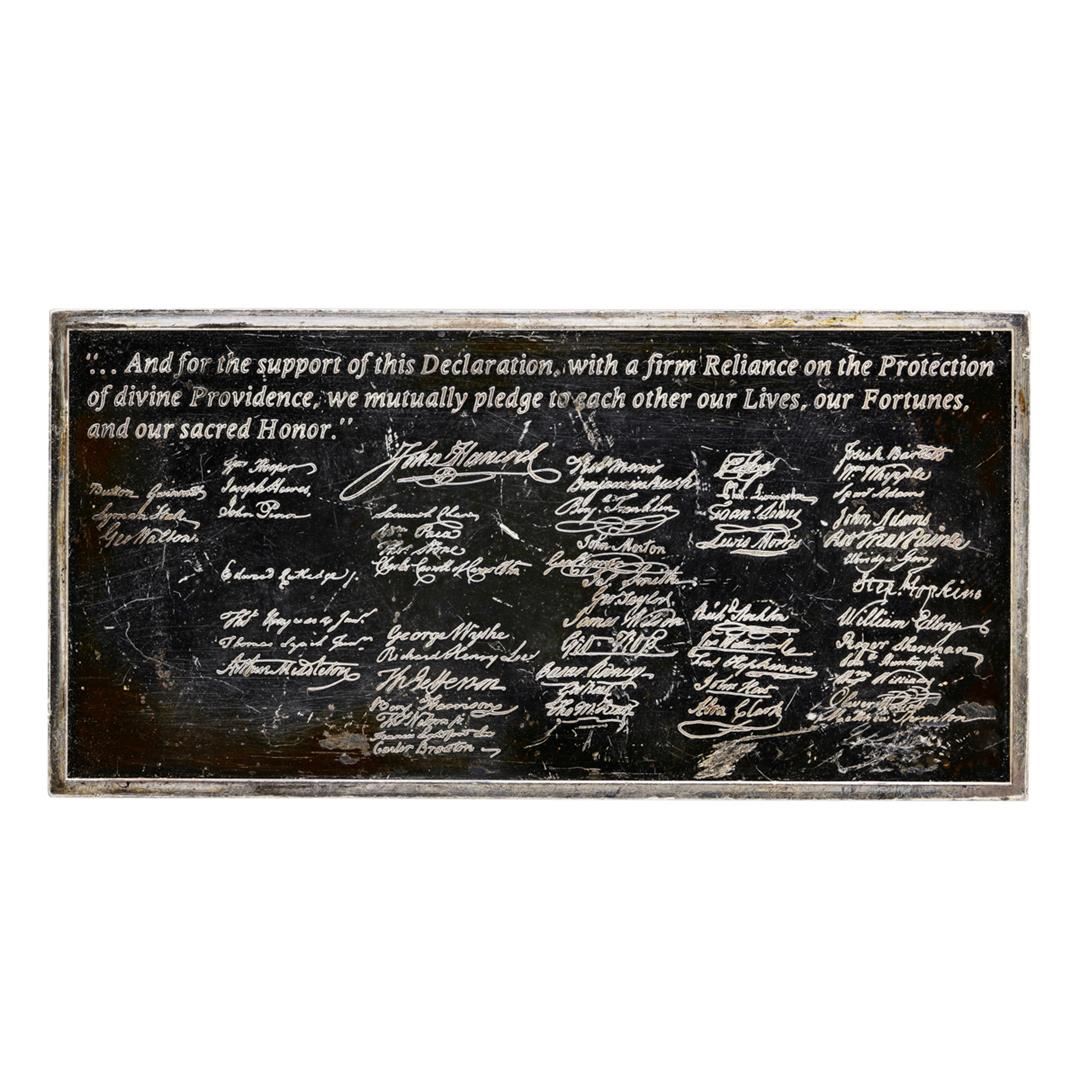 "... And for the support of this Declaration, with a firm Reliance on the Protection
of divine Providence, we mutually pledge to each other our Lives, our Fortunes,
and our sacred Honor."
John Hancock
Button Gwinnett
Lyman Hall
Geo Walton.
Wm Hooper
Joseph Hewes,
John Penn
Edward Rutledge /.
Thos Heyward Junr.
Thomas Lynch Junr.
Arthur Middleton
Samuel Chase
Wm Paca
Thos Stone
Charles Carroll of Carrollton
George Wythe
Richard Henry Lee
Th Jefferson
Benj Harrison
Thos Nelson jr.
Francis Lightfoot Lee
Carter Braxton
Robt Morris
Benjamin Rush
Benj. Franklin
John Morton
Geo Clymer
Jas. Smith
Geo Taylor
James Wilson
Geo. Ross
Caesar Rodney
Geo Read
Tho M:Kean
Phil. Livingston
Frans. Lewis
Lewis Morris
Richd. Stockton
Jno Witherspoon
Fras. Hopkinson
John Hart
Abra Clark
Josiah Bartlett
Wm. Whipple
Saml Adams
John Adams
Robt Treat Paine
Elbridge Gerry
Step. Hopkins
William Ellery
Roger Sherman
Saml. Huntington
Wm. Williams
Oliver Wolcott
Matthew Thornton